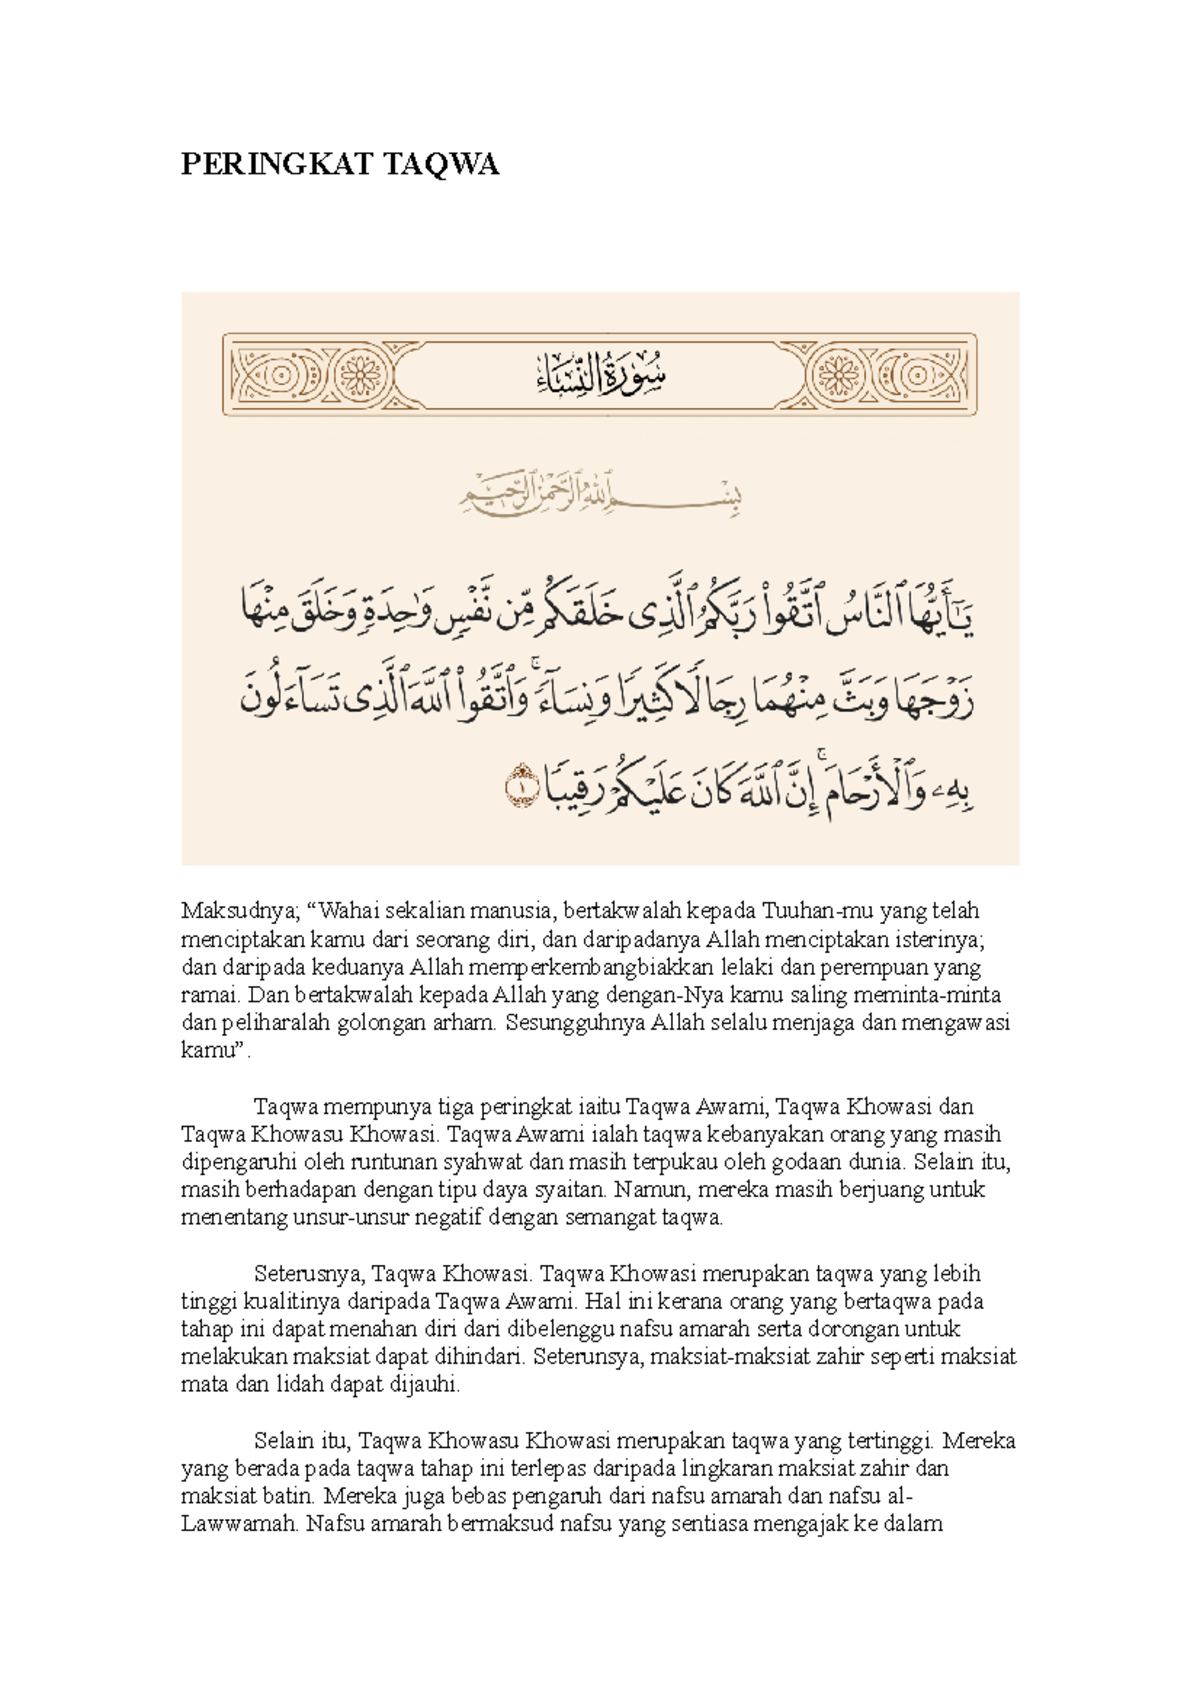 PERINGKAT TAQWA
سُورَةُ النِّسَاءِ
بِسْمِ ٱللَّهِ ٱلرَّحْمَٰنِ ٱلرَّحِيمِ
يَـٰٓأَيُّهَا ٱلنَّاسُ ٱتَّقُوا۟ رَبَّكُمُ ٱلَّذِى خَلَقَكُم مِّن نَّفْسٍ وَٰحِدَةٍ وَخَلَقَ مِنْهَا
زَوْجَهَا وَبَثَّ مِنْهُمَا رِجَالًا كَثِيرًا وَنِسَآءً ۚ وَٱتَّقُوا۟ ٱللَّهَ ٱلَّذِى تَسَآءَلُونَ
بِهِۦ وَٱلْأَرْحَامَ ۚ إِنَّ ٱللَّهَ كَانَ عَلَيْكُمْ رَقِيبًا ١
Maksudnya; “Wahai sekalian manusia, bertakwalah kepada Tuuhan-mu yang telah
menciptakan kamu dari seorang diri, dan daripadanya Allah menciptakan isterinya;
dan daripada keduanya Allah memperkembangbiakkan lelaki dan perempuan yang
ramai. Dan bertakwalah kepada Allah yang dengan-Nya kamu saling meminta-minta
dan peliharalah golongan arham. Sesungguhnya Allah selalu menjaga dan mengawasi
kamu”.
Taqwa mempunya tiga peringkat iaitu Taqwa Awami, Taqwa Khowasi dan
Taqwa Khowasu Khowasi. Taqwa Awami ialah taqwa kebanyakan orang yang masih
dipengaruhi oleh runtunan syahwat dan masih terpukau oleh godaan dunia. Selain itu,
masih berhadapan dengan tipu daya syaitan. Namun, mereka masih berjuang untuk
menentang unsur-unsur negatif dengan semangat taqwa.
Seterusnya, Taqwa Khowasi. Taqwa Khowasi merupakan taqwa yang lebih
tinggi kualitinya daripada Taqwa Awami. Hal ini kerana orang yang bertaqwa pada
tahap ini dapat menahan diri dari dibelenggu nafsu amarah serta dorongan untuk
melakukan maksiat dapat dihindari. Seterunsya, maksiat-maksiat zahir seperti maksiat
mata dan lidah dapat dijauhi.
Selain itu, Taqwa Khowasu Khowasi merupakan taqwa yang tertinggi. Mereka
yang berada pada taqwa tahap ini terlepas daripada lingkaran maksiat zahir dan
maksiat batin. Mereka juga bebas pengaruh dari nafsu amarah dan nafsu al-
Lawwamah. Nafsu amarah bermaksud nafsu yang sentiasa mengajak ke dalam